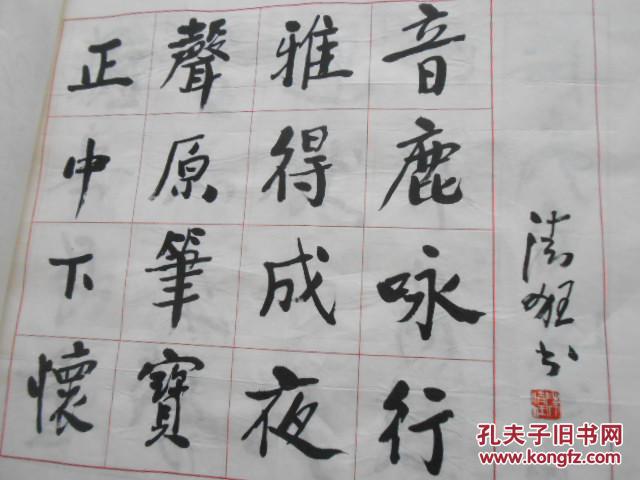 正聲雅音
中原得鹿
下筆成咏
懷寶夜行
孔夫子旧书网
www.kongfz.com